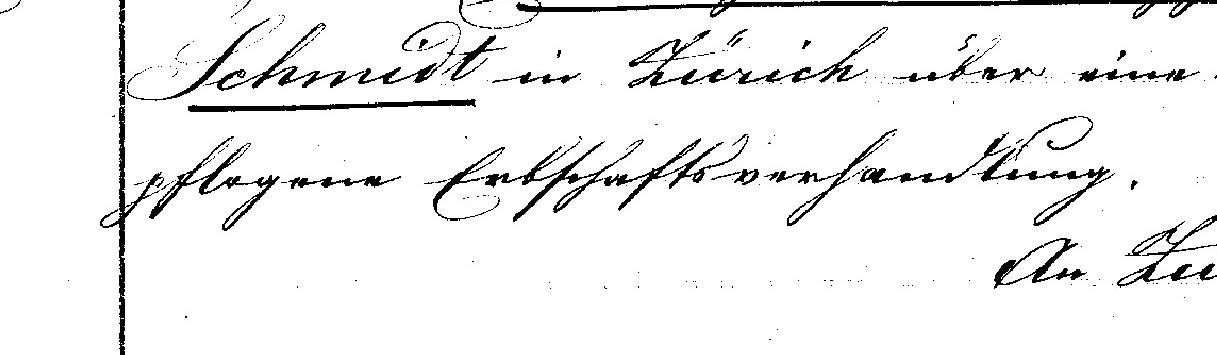 Schmidt in Zürich über eine
pflogene Erbschaftsverhandlung.
An Zu